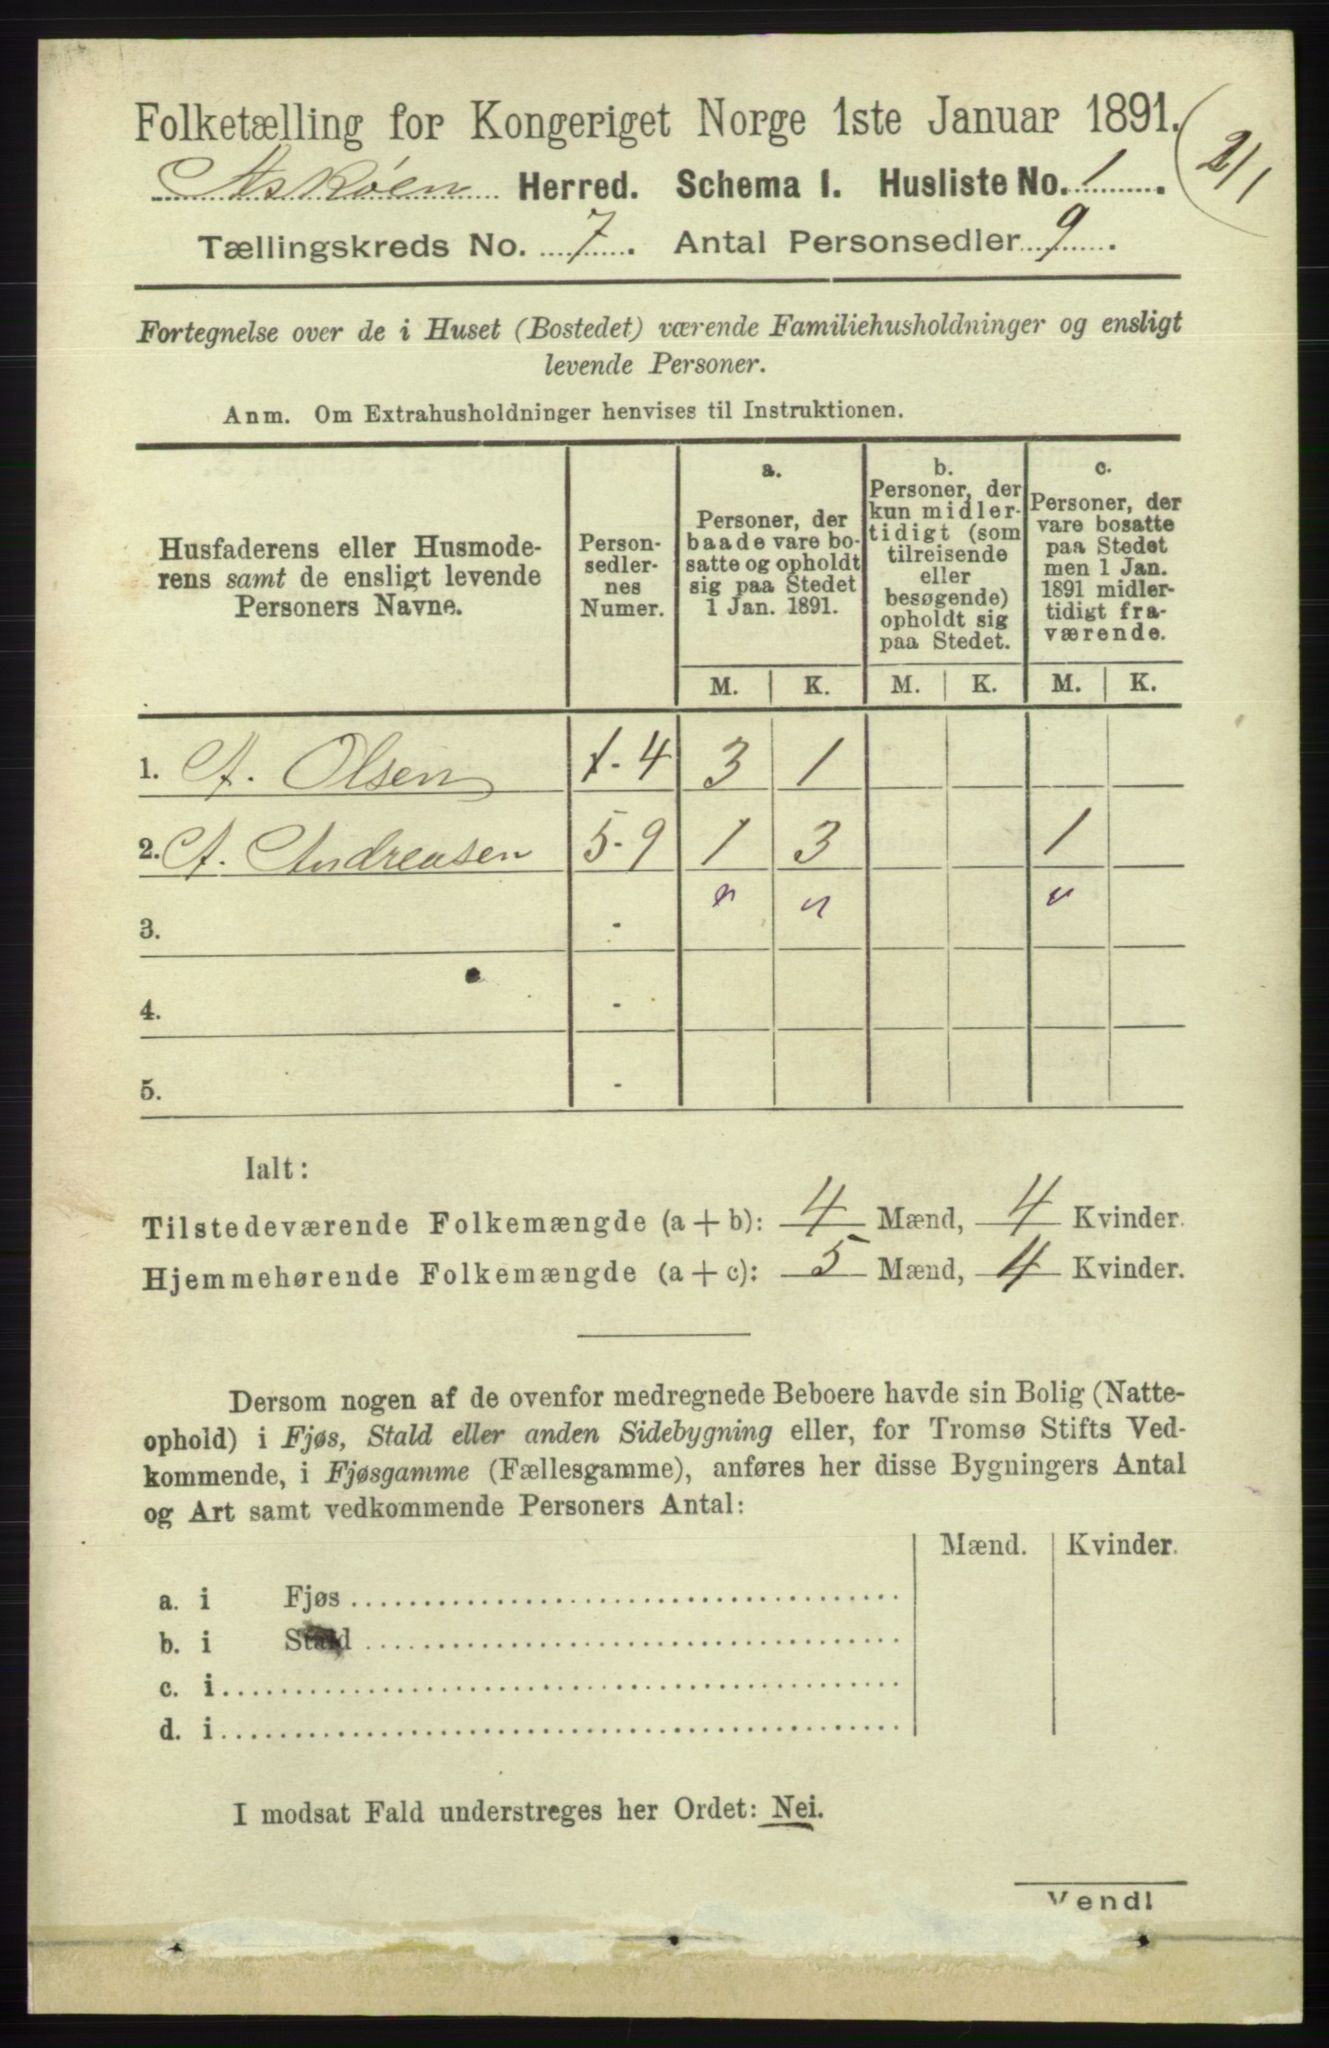 Folketælling for Kongeriget Norge 1ste Januar 1891.
2/1
Askøen Herred. Schema I. Husliste No. 1.
Tællingskreds No. 7. Antal Personsedler 9.
Fortegnelse over de i Huset (Bostedet) værende Familiehusholdninger og ensligt
levende Personer.
Anm. Om Extrahusholdninger henvises til Instruktionen.
Husfaderens eller Husmode-
rens samt de ensligt levende
Personers Navne.
Person-
sedler-
nes
Numer.
a.
Personer, der
baade vare bo-
satte og opholdt
sig paa Stedet
1 Jan. 1891.
b.
Personer, der
kun midler-
tidigt (som
tilreisende
eller
besøgende)
opholdt sig
paa Stedet.
c.
Personer, der
vare bosatte
paa Stedet
men 1 Jan.
1891 midler-
tidigt fra-
værende.
M. K. M. K. M. K.
1. A. Olsen 1-4 3 1
2. A. Andreasen 5-9 1 3 1
3. -
4. -
5. -
Ialt:
Tilstedeværende Folkemængde (a+b): 4 Mænd, 4 Kvinder.
Hjemmehørende Folkemængde (a+c): 5 Mænd, 4 Kvinder.
Dersom nogen af de ovenfor medregnede Beboere havde sin Bolig (Natte-
ophold) i Fjøs, Stald eller anden Sidebygning eller, for Tromsø Stifts Ved-
kommende, i Fjøsgamme (Fællesgamme), anføres her disse Bygningers Antal
og Art samt vedkommende Personers Antal:
Mænd. Kvinder.
a. i Fjøs
b. i Stald
c. i
d. i
I modsat Fald understreges her Ordet: Nei.
Vend!